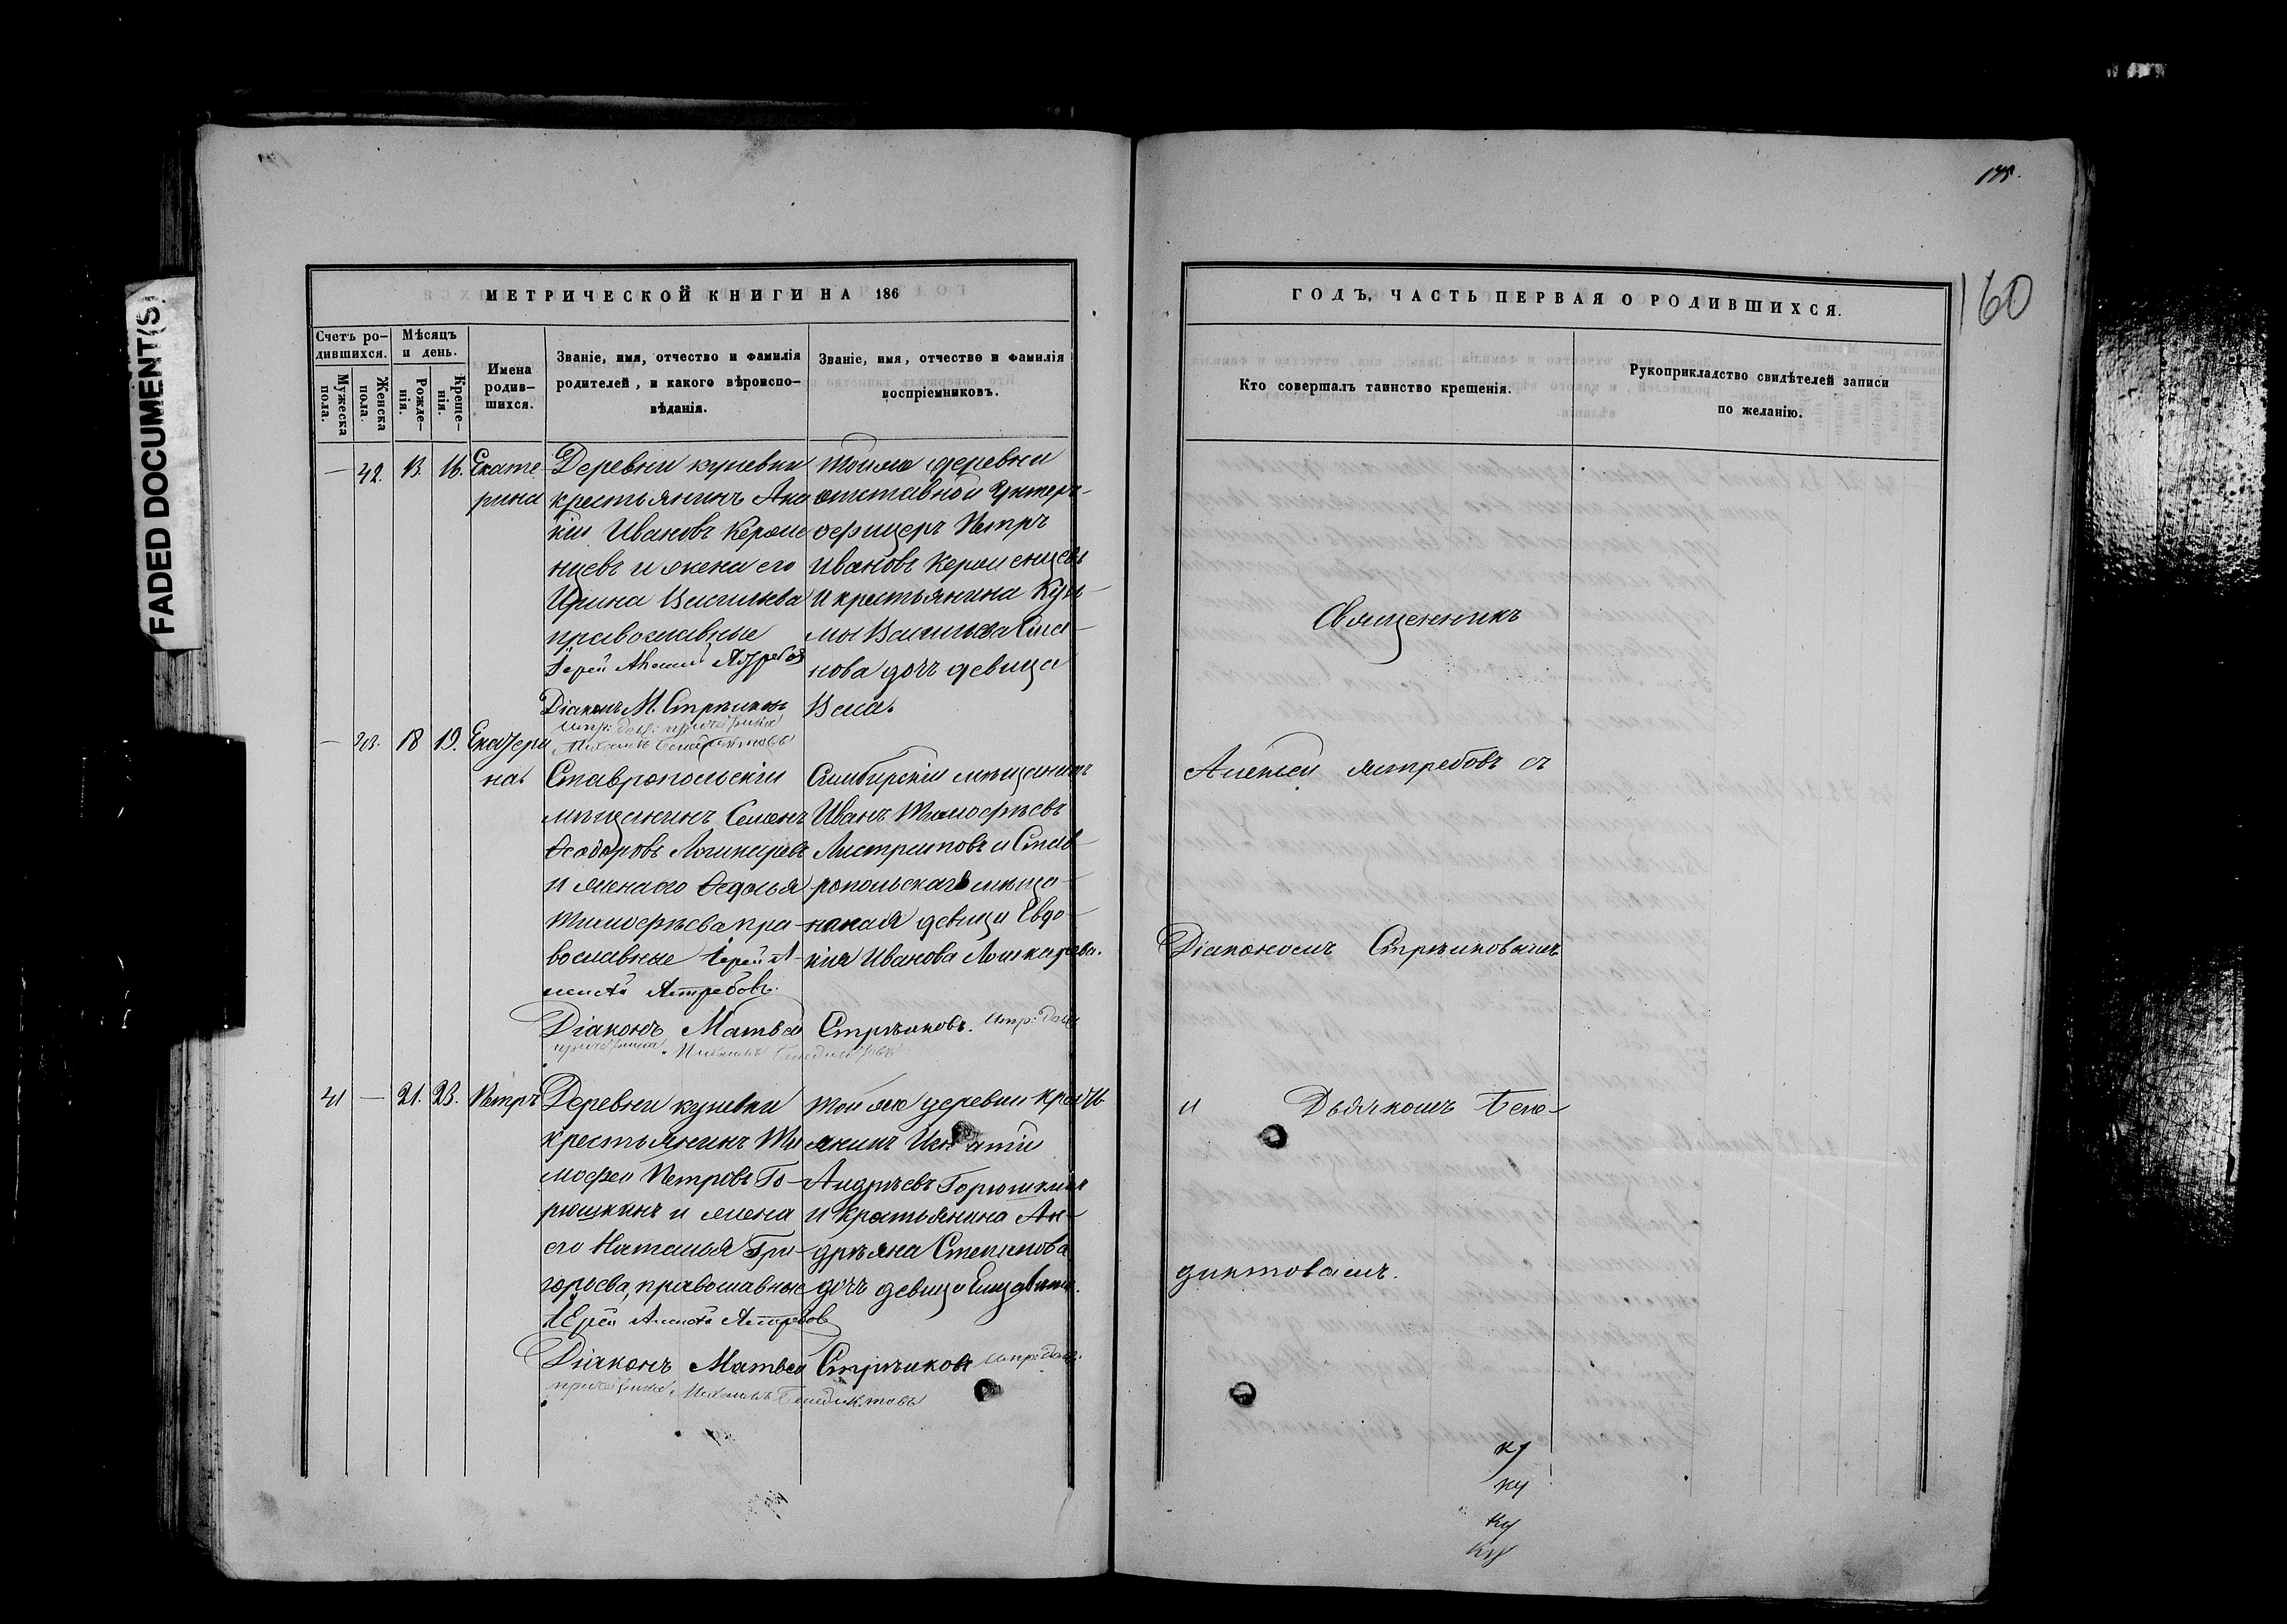 FADED DOCUMENT(S)
МЕТРИЧЕСКОЙ КНИГИ НА 186
Счетъ ро-
дившихся.
Мѣсяцъ
и день.
Мужеска
пола.
Женска
пола.
Рожде-
нія.
Креще-
нія.
Имена
родив-
шихся.
Званіе, имя, отчество и фамилія
родителей, и какого вѣроиспо-
вѣданія.
Званіе, имя, отчество и фамилія
воспріемниковъ.
— 42. 13. 16. Екате
рина
Деревни куневки
крестьянинъ Ака
кій Ивановъ Кероме
нцевъ и жена его
Ирина Васильева
православные
Іерей Алексій Ястребов
Діаконъ М. Стрѣлков
Испр: дол: причетника
Михаилъ Бенедиктовъ
Той же деревни
отставной Унтеръ-
офицеръ Петръ
Ивановъ Кероменцевъ
и крестьянина Кузь-
мы Васильева
нова дочь девица
— 43. 18 19. Екатери
на
Ставропольскій
мѣщанинъ Семенъ
Ѳеодоровъ Лошкаревъ
и жена его Ѳедосья
Тимофѣева пра-
вославные Іерей А-
лексѣй Ястребовъ.
Діаконъ Матвей Стрѣлковъ. Испр: Долж:
причетника Михаилъ Бенедиктовъ
Симбирскій мѣщанинъ
Иванъ Тимофѣевъ
Листратовъ и Став-
ропольская мѣща-
нская девица Евдо-
кія Иванова Лошкарева.
41 — 21. 23. Петръ
Деревни куневки
крестьянинъ Ти
мофей Петровъ Го-
рюшкинъ и жена
его Наталья Гри-
горьева, православные
Іерей Алексѣй Ястребов
Діаконъ Матвей Стрѣлковъ Испр: Долж:
причетника Михаилъ Бенедиктовъ
Той же деревни кресть
янинъ Игнатій
Андрѣевъ Горюшкинъ
и крестьянина Ан-
дрѣяна Степанова
дочь девица Елизавета.
ГОДЪ, ЧАСТЬ ПЕРВАЯ О РОДИВШИХСЯ.
160
Кто совершалъ таинство крещенія.
Рукоприкладство свидѣтелей записи
по желанію.
Священникъ
Алексей Ястребовъ съ
Діакономъ Стрѣлковымъ
и Дьячкомъ Бене-
диктовымъ.
ку
ку
ку
ку